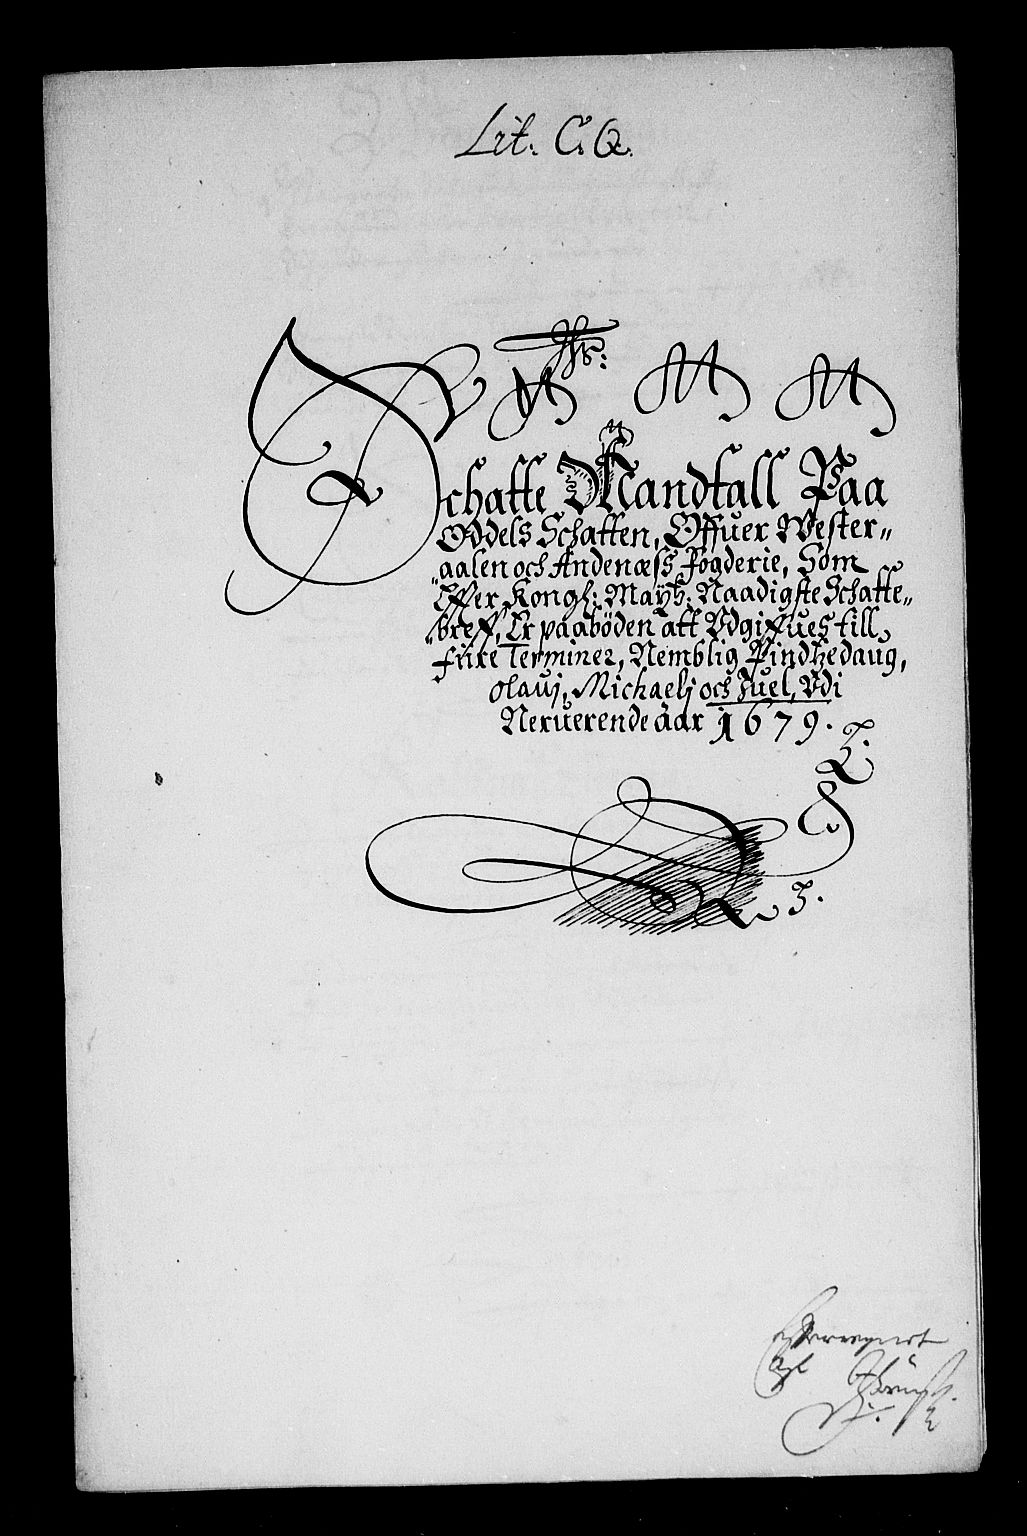 Lit. C. Q.
Jhs:
Schatte Mandtall Paa
Oddels Schatten, Offuer Wester„
„aalen och Andenæss Fogderie, Som
Effter Kongl: Mayts: Naadigste Schatte„
„breff, Er paaböden att Vdgiffues till
fiire Terminer, Nemblig Pindtzedaug,
olauj, Michaelj och Juel, Vdi
Neruerende aar 1679.
Efterregnet